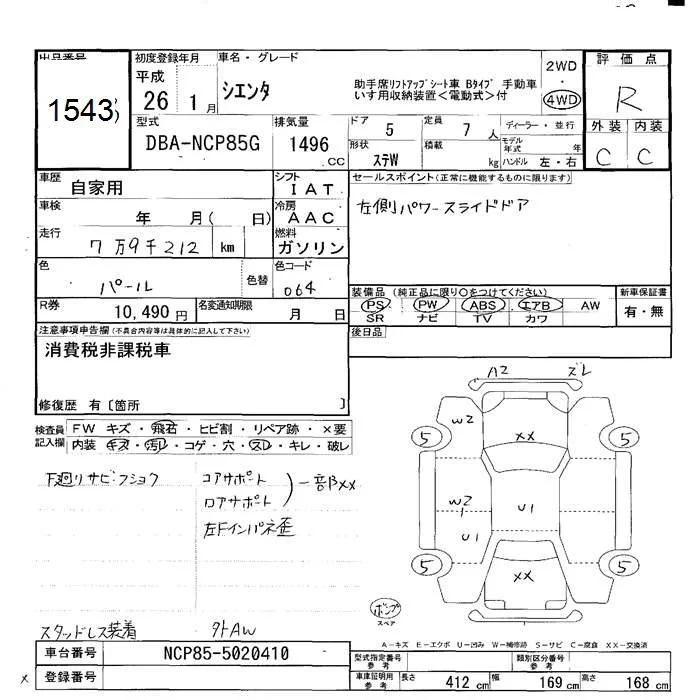 出品番号
1543
初度登録年月
平成
26 1月
車名・グレード
シエンタ
助手席リフトアップシート車 Bタイプ 手動車
いす用収納装置<電動式>付
2WD
・
4WD
評価点
R
外装 内装
C C
型式
DBA-NCP85G
排気量
1496 cc
ドア 5
定員 7人
形状 ステW
積載 kg
ディーラー・並行
モデル年式 年
ハンドル 左・右
車歴 自家用
シフト IAT
車検 年 月( 日)
冷房 AAC
走行 7万9千212 km
燃料 ガソリン
色 パール
色替
色コード 064
R券 10,490円
名変通知期限 月 日
セールスポイント(正常に機能するものに限ります)
左側パワースライドドア
装備品(純正品に限り○をつけてください)
PS PW ABS エアB AW
SR ナビ TV カワ
新車保証書
有・無
後日品
注意事項申告欄(不具合内容等は具体的に記入して下さい)
消費税非課税車
修復歴 有〔箇所 〕
検査員記入欄
FW キズ・飛石・ヒビ割・リペア跡・×要
内装 キズ・汚レ・コゲ・穴・スレ・キレ・破レ
下廻りサビ・フショク
コアサポート
ロアサポート
一部XX
左Fインパネ歪
スタッドレス装着 外AW
A2 ズレ
W2
XX
5 5
W2
U1
U1
XX
5 5
ポンプ
スペア
A-キズ E-エクボ U-凹み W-補修跡 S-サビ C-腐食 XX-交換済
車台番号 NCP85-5020410
x 登録番号
型式指定番号 参考
類別区分番号 参考
車庫証明用 参考
長さ 412 cm 幅 169 cm 高さ 168 cm